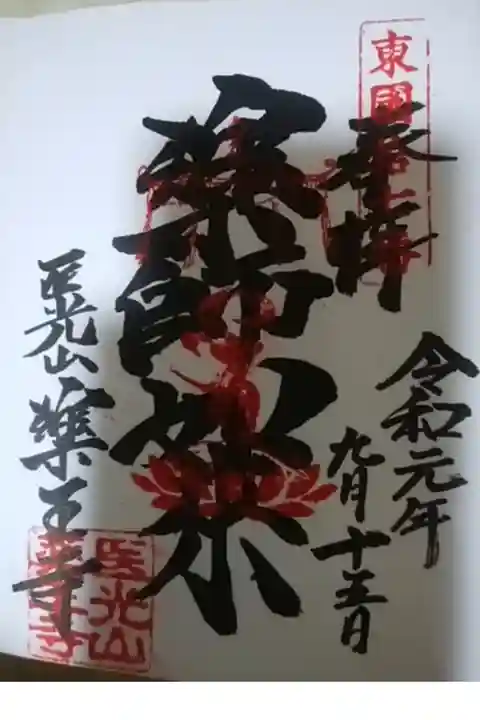 東国
奉拝
令和元年
九月十五日
薬師
医光山薬王寺
医光山
薬王寺